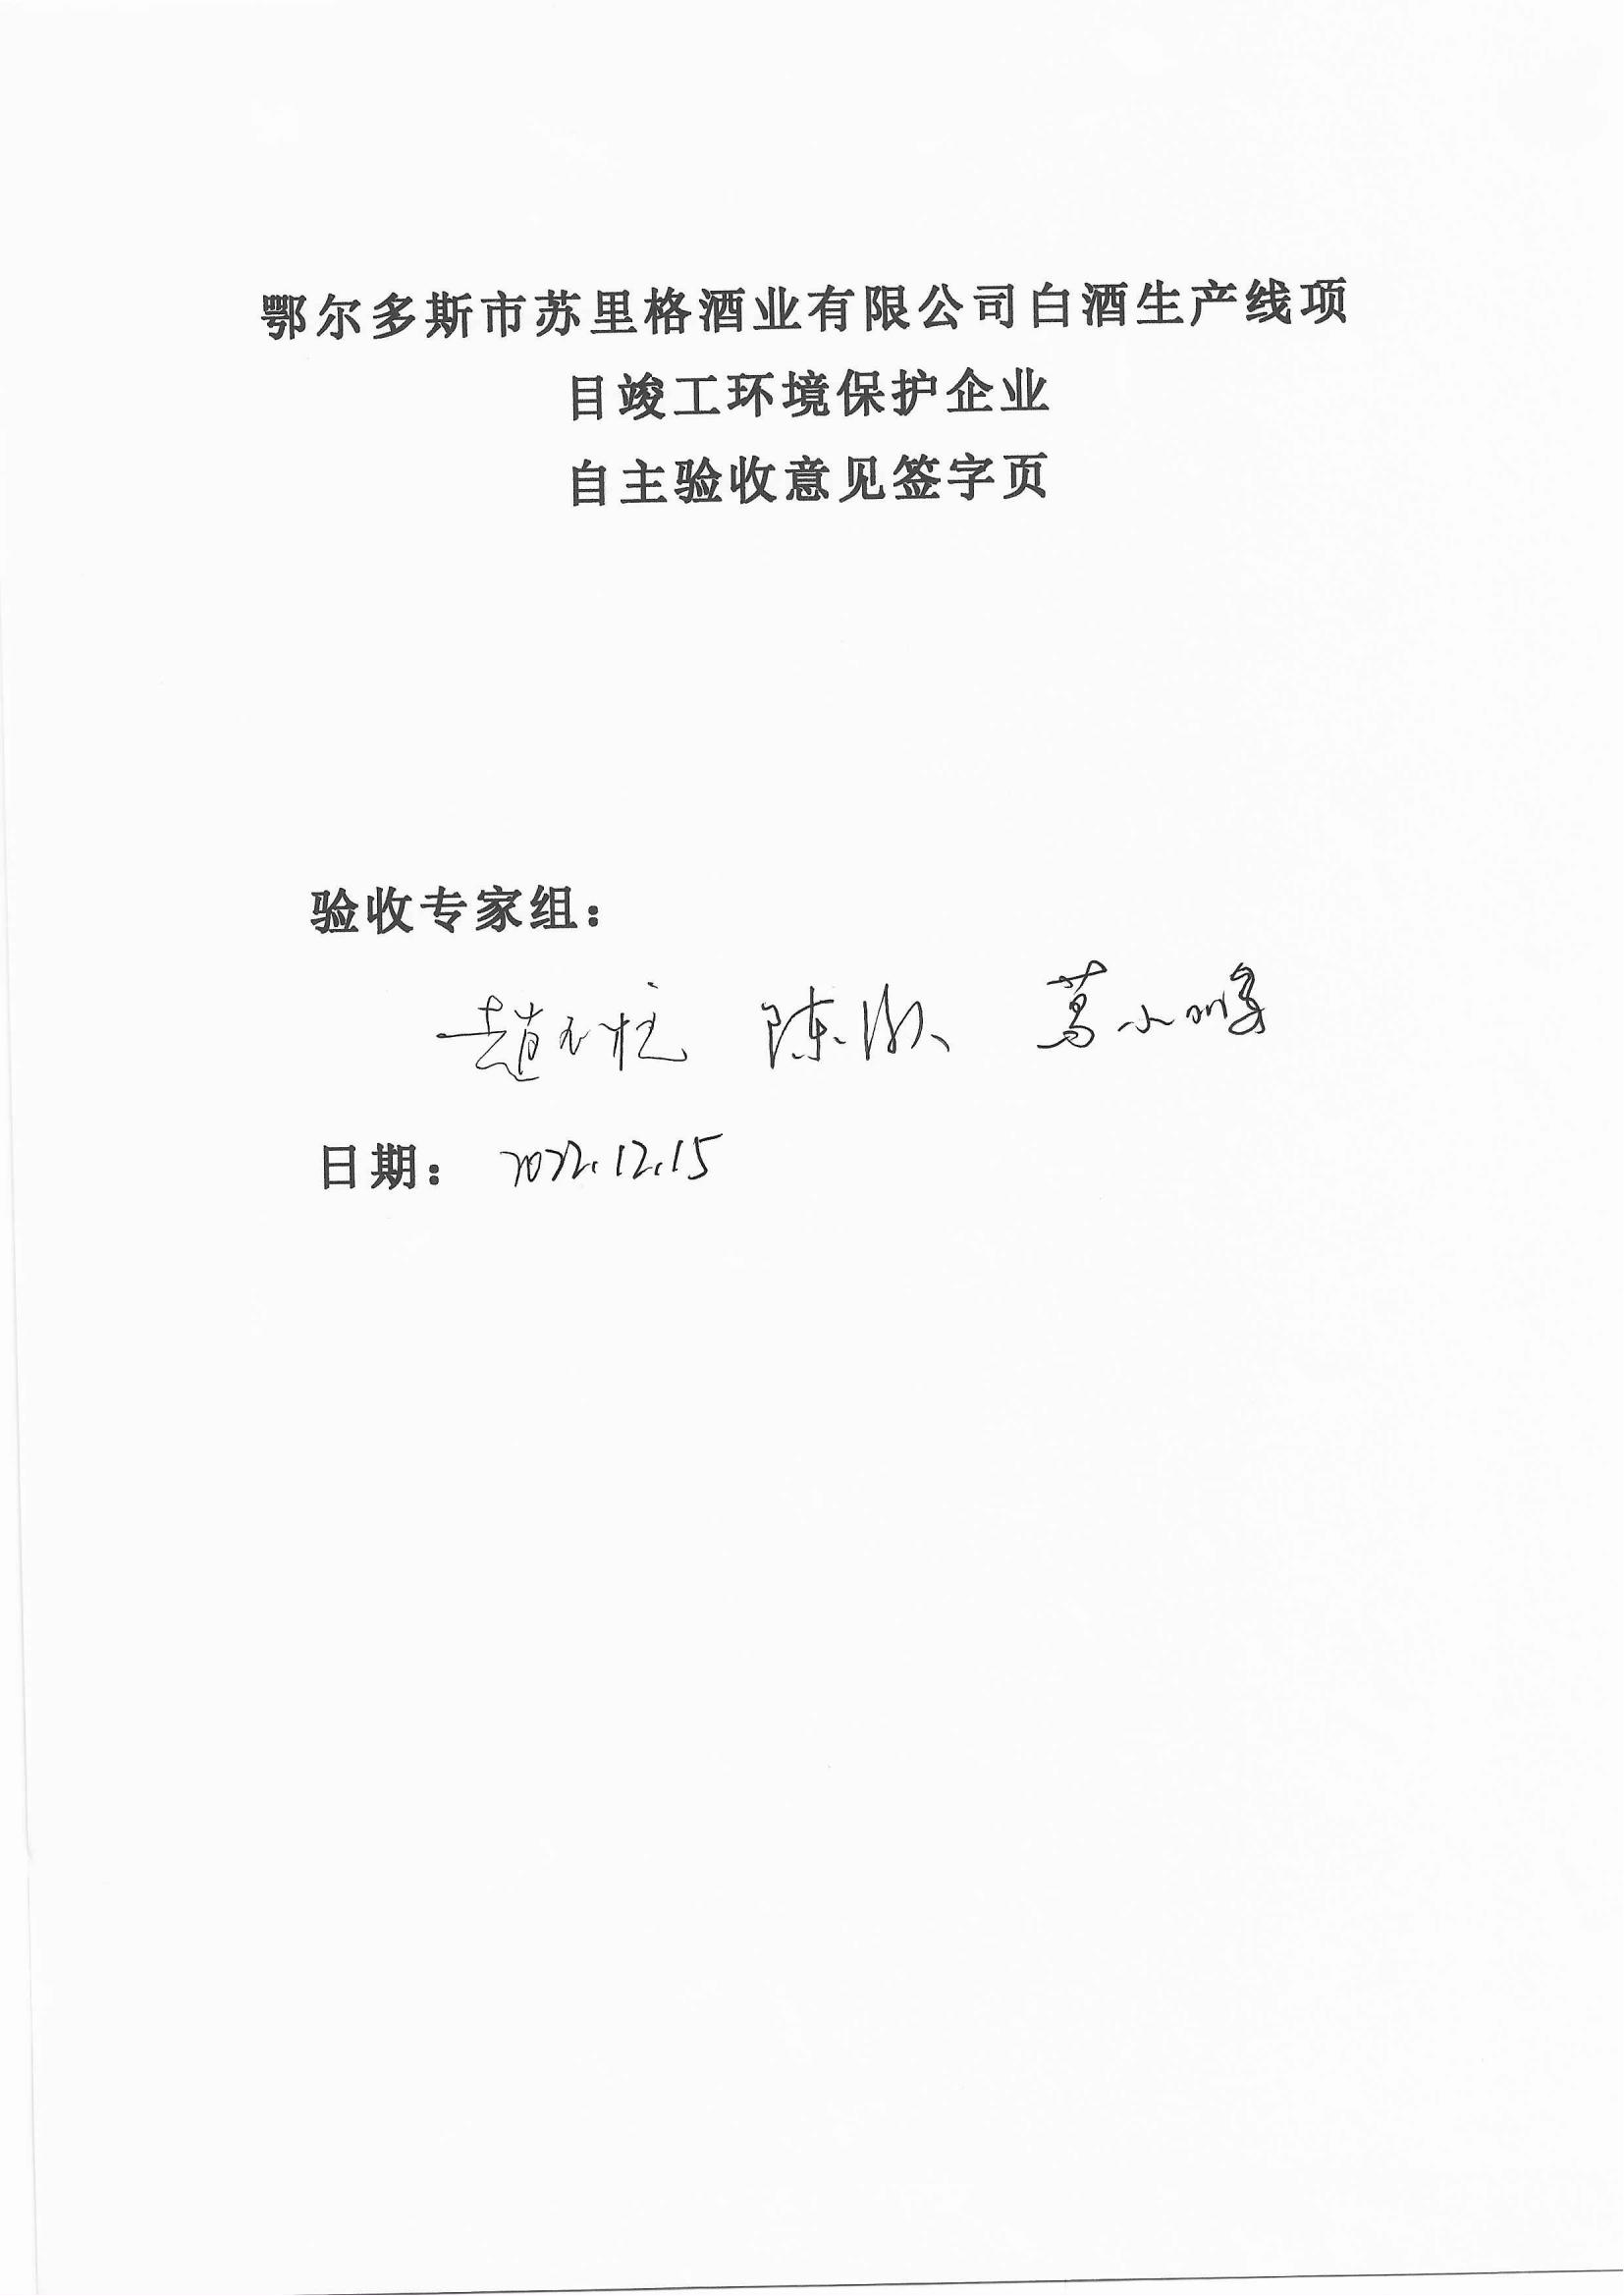 鄂尔多斯市苏里格酒业有限公司白酒生产线项
目竣工环境保护企业
自主验收意见签字页
验收专家组：
赵玉柱 陈 葛小鹏
日期： 2022.12.15